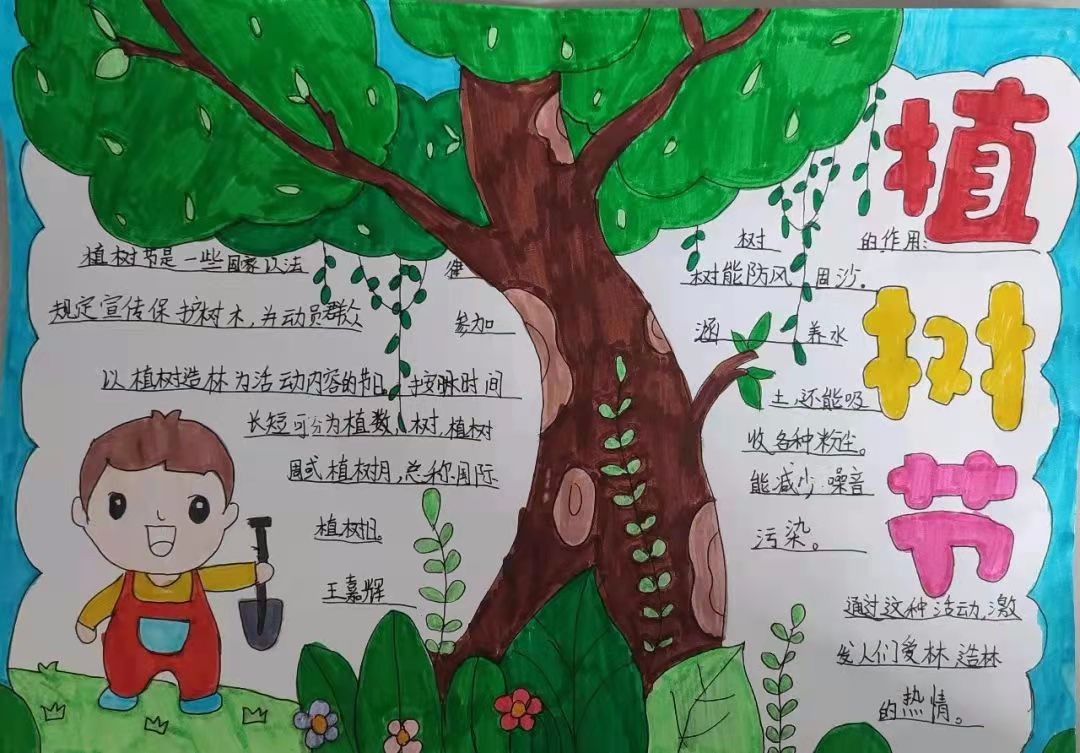 植树节
植树节是一些国家以法
规定宣传保护树木,并动员群众
参加
以植树造林为活动内容的节日。按脉时间
长短可分为植数、树,植树
周或植树月,总称国际
植树日。
王嘉辉
树 的作用:
树能防风 固沙.
涵 养水
土,还能吸
收各种粉尘。
能减少噪音
污染。
通过这种活动,激
发人们爱林造林
的热情。